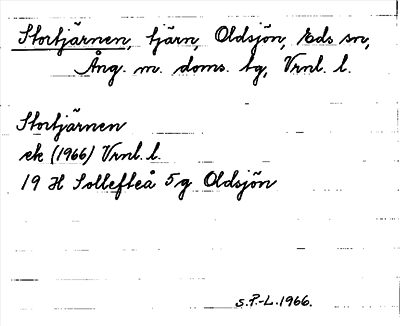 Stortjärnen, tjärn, Oldsjön, Eds sn,
Ång. m. doms. tg, Vrnl. l.
Stortjärnen
ek (1966) Vrnl. l.
19 H Sollefteå 5g Oldsjön
S.P.-L.1966.